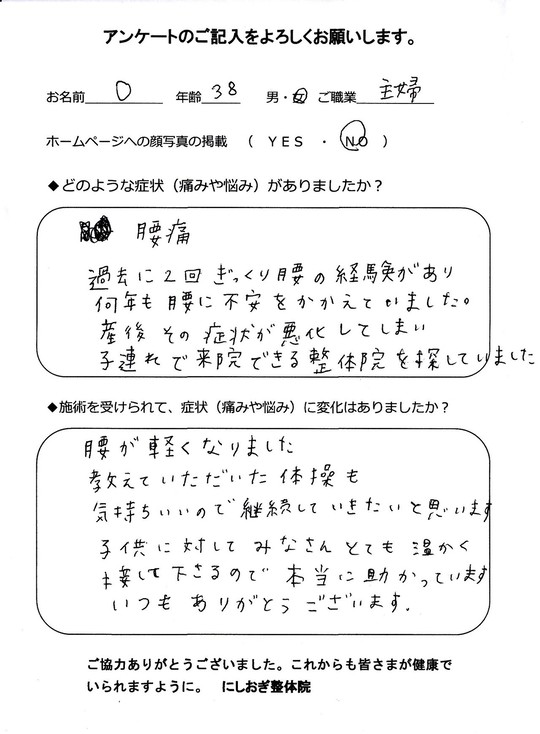 アンケートのご記入をよろしくお願いします。
お名前 O 年齢 38 男・女 ご職業 主婦
ホームページへの顔写真の掲載 （ YES ・ NO ）
◆どのような症状（痛みや悩み）がありましたか？
腰痛
過去に2回 ぎっくり腰の経験があり
何年も 腰に不安をかかえていました。
産後 その 症状が 悪化してしまい
子連れで来院できる整体院を探していました
◆施術を受けられて、症状（痛みや悩み）に変化はありましたか？
腰が軽くなりました
教えていただいた体操も
気持ちいいので継続していきたいと思います
子供に対して みなさん とても 温かく
接して下さるので 本当に助かっています
いつも ありがとう ございます.
ご協力ありがとうございました。これからも皆さまが健康で
いられますように。 にしおぎ整体院